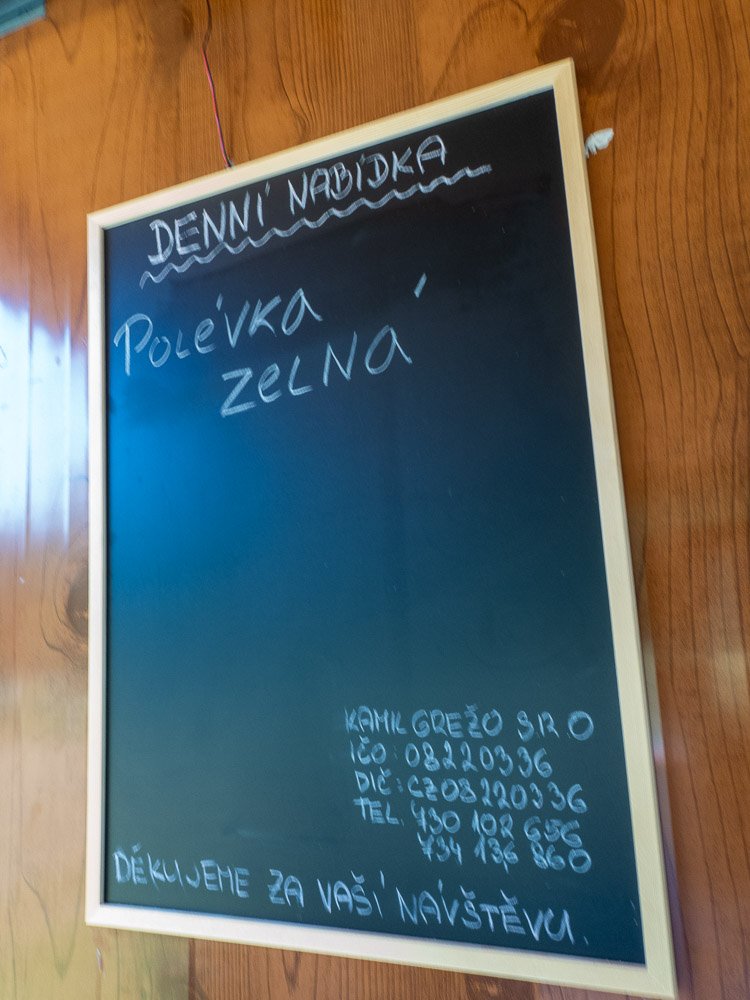 DENNÍ NABÍDKA
POLÉVKA
ZELNÁ
KAMIL GREŽO S.R.O
IČO: 08220336
DIČ: CZ08220336
TEL. 730 102 656
734 136 860
DĚKUJEME ZA VAŠÍ NÁVŠTĚVU.